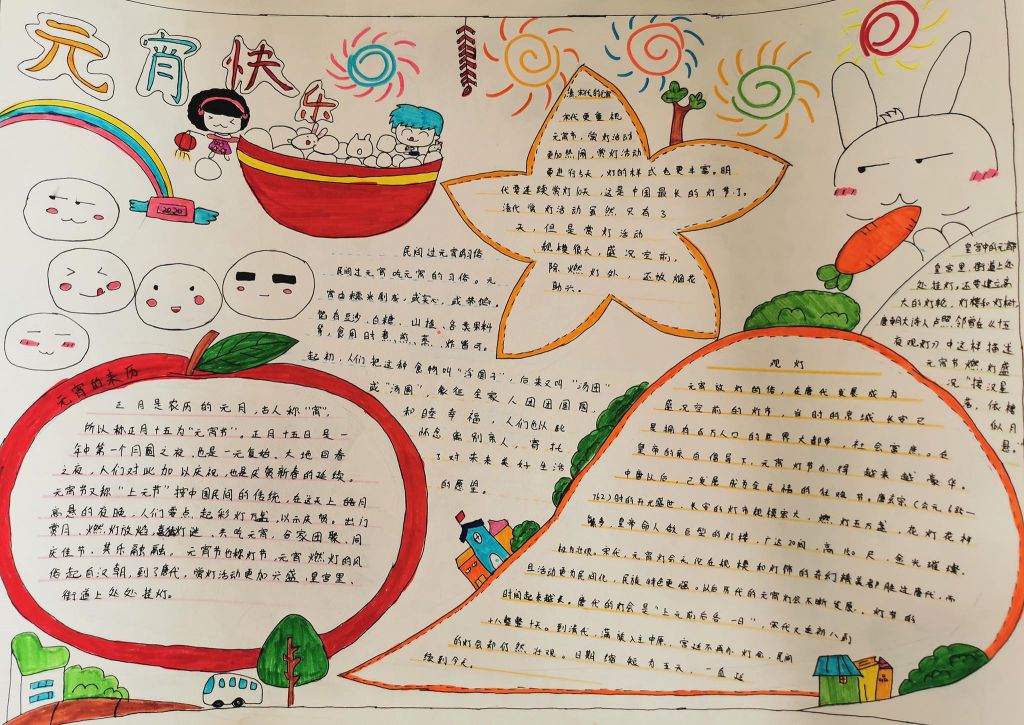 元宵快乐
2020
元宵的来历
正月是农历的元月,古人称"宵",
所以称正月十五为"元宵节"。正月十五日是一
年中第一个月圆之夜,也是一元复始、大地回春
之夜,人们对此加以庆祝,也是庆贺新春的延续。
元宵节又称"上元节"按中国民间的传统,在这天上皓月
高悬的夜晚,人们要点起彩灯万盏,以示庆贺。出门
赏月、燃灯放焰、喜猜灯谜、共吃元宵、合家团聚、同
庆佳节、其乐融融。元宵节也称灯节,元宵燃灯的风
俗起自汉朝,到了唐代,赏灯活动更加兴盛,皇宫里、
街道上处处挂灯。
民间过元宵的习俗
民间过元宵吃元宵的习俗。元
宵由糯米制成,或实心,或带馅。
馅有豆沙、白糖、山楂、各类果料
等,食用时煮、煎、蒸、炸皆可。
起初,人们把这种食物叫"浮圆子",后来又叫"汤团"
或"汤圆",象征全家人团团圆圆,
和睦幸福,人们也以此
怀念离别亲人,寄托
了对未来美好生活
的愿望。
宋代更重视
元宵节,赏灯活动
更加热闹,赏灯活动
要进行5天,灯的样式也更丰富。明
代要连续赏灯10天,这是中国最长的灯节了。
清代赏灯活动虽然只有3
天,但是赏灯活动
规模很大,盛况空前,
除燃灯外,还放烟花
助兴。
皇宫中的元宵
皇宫里、街道上处
处挂灯,还要建立高
大的灯轮、灯楼和灯树,
唐朝大诗人卢照邻曾在《十五
夜观灯》中这样描述
元宵节燃灯盛
况"接汉疑
星落,依楼
似月
悬。
观灯
元宵放灯的习俗,在唐代发展成为
盛况空前的灯市,当时的京城长安已
是拥有百万人口的世界大都市,社会富庶。在
皇帝的亲自倡导下,元宵灯节办得越来越豪华。
中唐以后,已发展成为全民性的狂欢节。唐玄宗(公元685—
762)时的开元盛世,长安的灯市规模很大,燃灯五万盏,花灯花样
繁多,皇帝命人做巨型的灯楼,广达20间,高150尺,金光璀璨,
极为壮观。宋代,元宵灯会无论在规模和灯饰的奇幻精美都胜过唐代,而
且活动更为民间化,民族特色更强。以后历代的元宵灯会不断发展,灯节的
时间也越来越长。唐代的灯会是"上元前后各一日",宋代又在十六之后加
十八整整十天。到清代,满族入主中原,宫廷不再办灯会,民间
的灯会却仍然壮观。日期缩短为五天,一直延
续到今天。